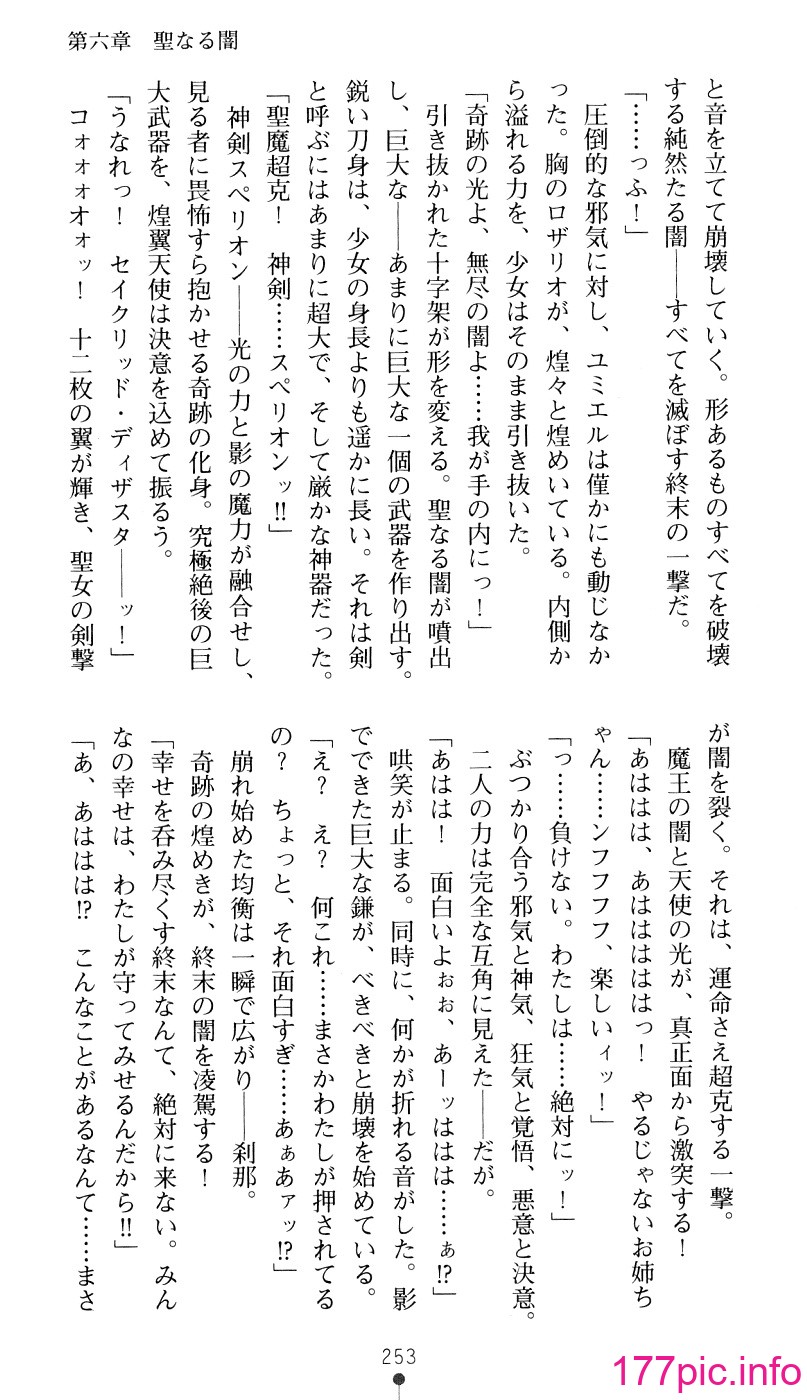 第六章　聖なる闇
と音を立てて崩壊していく。形あるものすべてを破壊
する純然たる闇――すべてを滅ぼす終末の一撃だ。
「……っふ！」
　圧倒的な邪気に対し、ユミエルは僅かにも動じなか
った。胸のロザリオが、煌々と煌めいている。内側か
ら溢れる力を、少女はそのまま引き抜いた。
「奇跡の光よ、無尽の闇よ……我が手の内にっ！」
　引き抜かれた十字架が形を変える。聖なる闇が噴出
し、巨大な――あまりに巨大な一個の武器を作り出す。
鋭い刀身は、少女の身長よりも遥かに長い。それは剣
と呼ぶにはあまりに超大で、そして厳かな神器だった。
「聖魔超克！　神剣……スペリオンッ!!」
　神剣スペリオン――光の力と影の魔力が融合せし、
見る者に畏怖すら抱かせる奇跡の化身。究極絶後の巨
大武器を、煌翼天使は決意を込めて振るう。
「うなれっ！　セイクリッド・ディザスタ――ッ！」
　コォォォオォッ！　十二枚の翼が輝き、聖女の剣撃
が闇を裂く。それは、運命さえ超克する一撃。
　魔王の闇と天使の光が、真正面から激突する！
「あははは、あはははははっ！　やるじゃないお姉ち
ゃん……ンフフフフ、楽しいィッ！」
「っ……負けない。わたしは……絶対にッ！」
　ぶつかり合う邪気と神気、狂気と覚悟、悪意と決意。
　二人の力は完全な互角に見えた――だが。
「あはは！　面白いよぉぉ、あーッははは……ぁ!?」
　哄笑が止まる。同時に、何かが折れる音がした。影
でできた巨大な鎌が、べきべきと崩壊を始めている。
「え？　え？　何これ……まさかわたしが押されてる
の？　ちょっと、それ面白すぎ……あぁあァッ!?」
　崩れ始めた均衡は一瞬で広がり――刹那。
　奇跡の煌めきが、終末の闇を凌駕する！
「幸せを呑み尽くす終末なんて、絶対に来ない。みん
なの幸せは、わたしが守ってみせるんだから!!」
「あ、あははは!?　こんなことがあるなんて……まさ
253
177pic.info